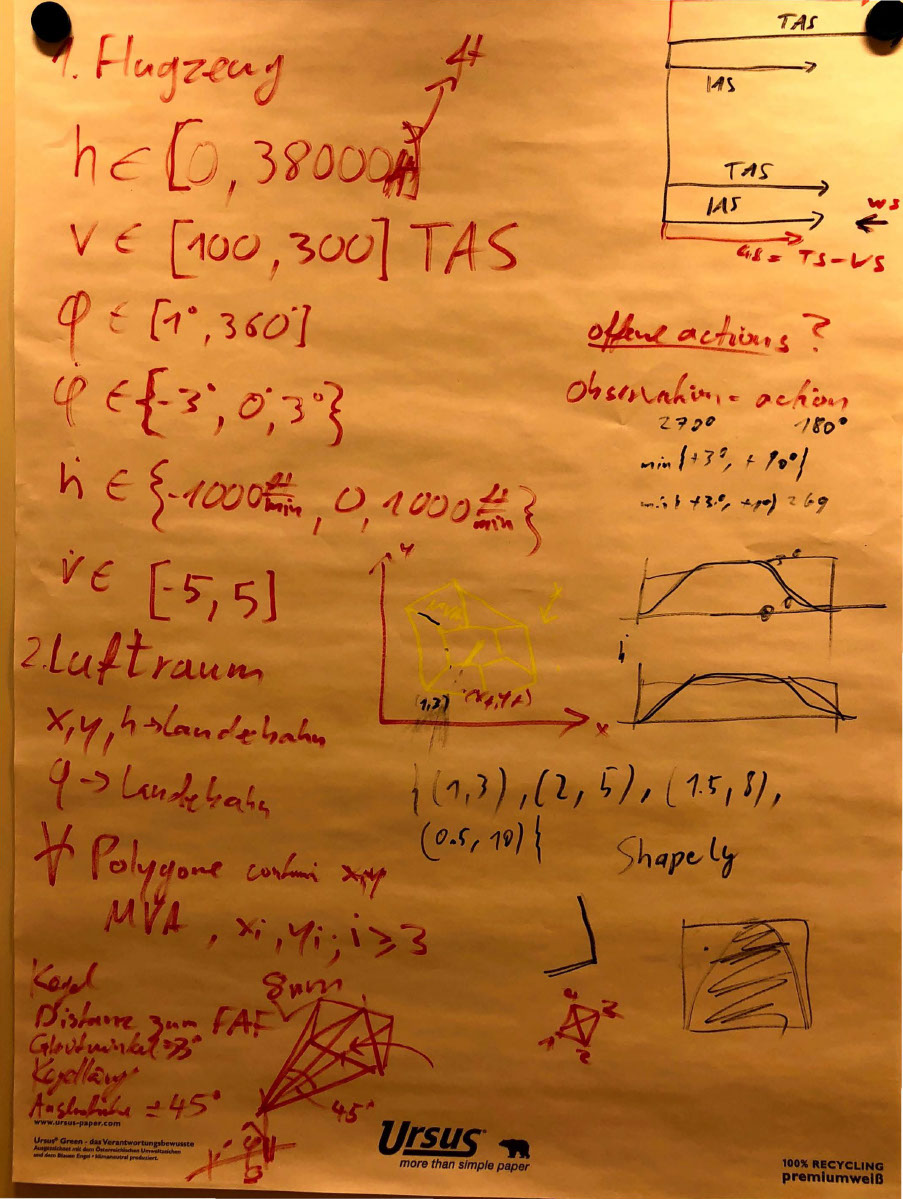 1. Flugzeug
ft
h ∈ [0, 38000]
v ∈ [100, 300] TAS
φ ∈ [1°, 360°]
φ̇ ∈ {-3°, 0°, 3°}
ḣ ∈ {-1000 ft/min, 0, 1000 ft/min}
v̇ ∈ [-5, 5]
2. Luftraum
x, y, h → Landebahn
φ → Landebahn
∀ Polygone x,y
MVA, xi, yi; i ≥ 3
Kegel
8nm
Distanz zum FAF
Gleitwinkel 3°
Kegellänge
± 45°
45°
TAS
IAS
TAS
IAS
WS
GS = TS - WS
offene actions?
Observation = action
270° 180°
min{+3°, +90°}
269
3°
0°
ḣ
y
MVA
(1,3)
x
{(1,3), (2,5), (1.5,8),
(0.5,10)}
Shapely
1
2
3
4
www.ursus-paper.com
Ursus® Green - das Verantwortungsbewusste
Ausgezeichnet mit dem Österreichischen Umweltzeichen
und dem Blauen Engel • klimaneutral produziert.
Ursus
more than simple paper
100% RECYCLING
premiumweiß